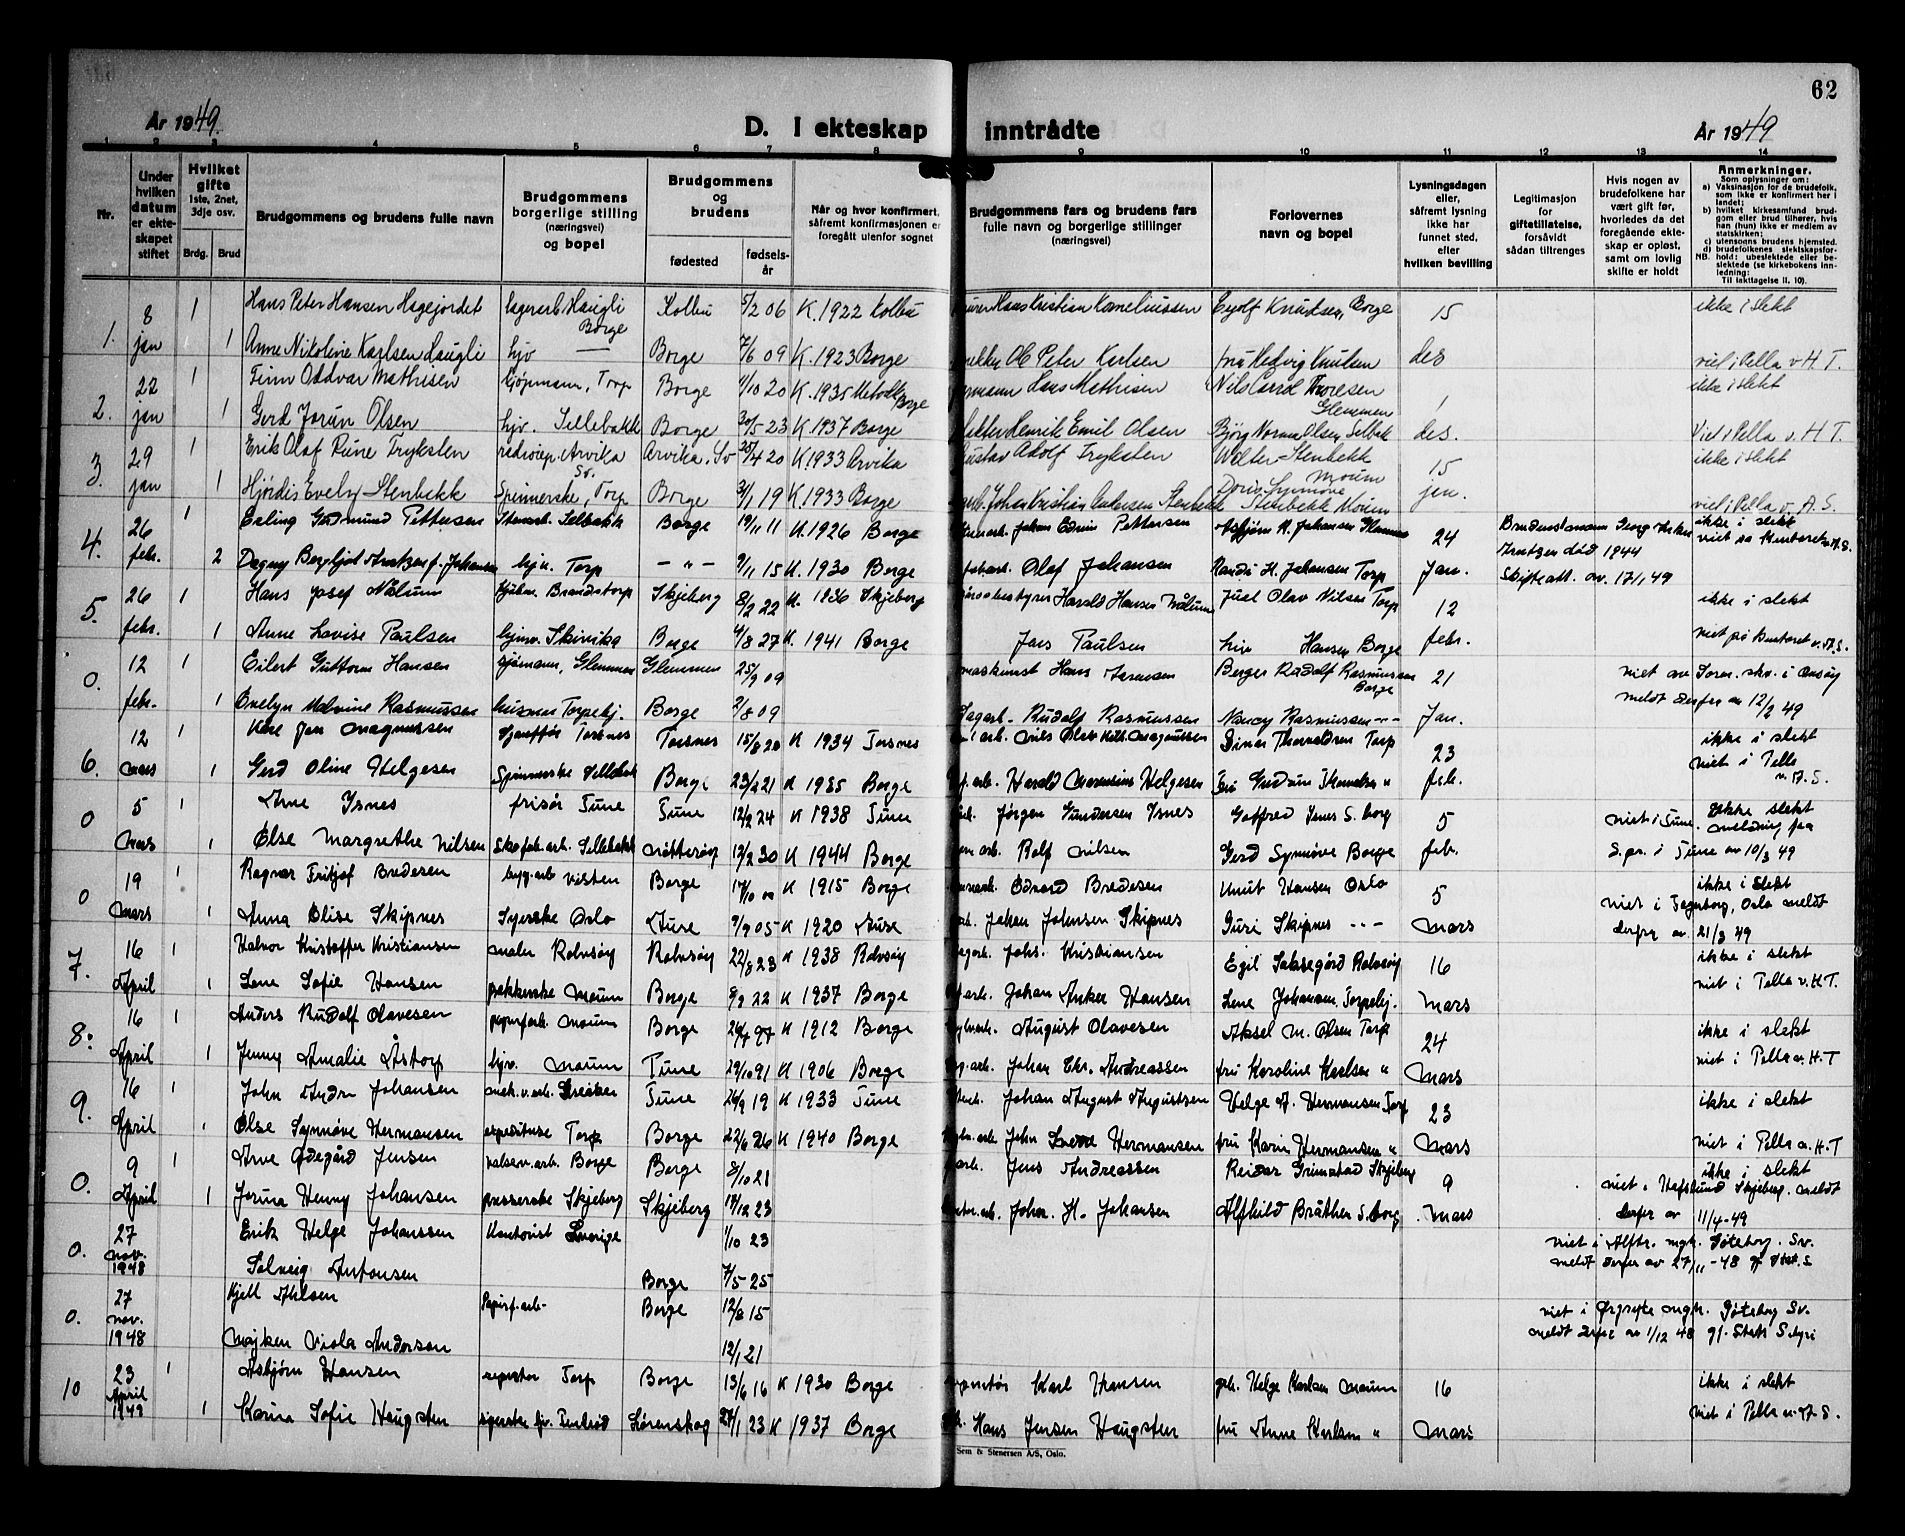 62
År 1949.
D. I ekteskap inntrådte
År 1949
1 2 3 4 5 6 7 8 9 10 11 12 13 14
Nr.
Under hvilken datum er ekteskapet stiftet
Hvilket gifte 1ste, 2net, 3dje osv.
Brdg. Brud
Brudgommens og brudens fulle navn
Brudgommens borgerlige stilling (næringsvei) og bopel
Brudgommens og brudens
fødested
fødselsår
Når og hvor konfirmert, såfremt konfirmasjonen er foregått utenfor sognet
Brudgommens fars og brudens fars fulle navn og borgerlige stillinger (næringsvei)
Forlovernes navn og bopel
Lysningsdagen eller, såfremt lysning ikke har funnet sted, eller hvilken bevilling
Legitimasjon for giftetillatelse, forsåvidt sådan tiltrenges
Hvis nogen av brudefolkene har vært gift før, hvorledes da det foregående ekteskap er opløst, samt om lovlig skifte er holdt
Anmerkninger.
Som oplysninger om:
a) Vaksinasjon for de brudefolk, som ikke er konfirmert her i landet;
b) hvilket kirkesamfund brudgom eller brud tilhører, hvis han (hun) ikke er medlem av statskirken;
c) utensogns brudens hjemsted.
d) brudefolkenes slektskapsforhold: ubeslektede eller beslektede (se kirkebokens innledning:
NB.
Til iakttagelse II. 10).
1. 8 jan 1 Hans Peter Hansen Hagejordet lagerarb. Haugli Borge Kolbu 5/2 06 K. 1922 Kolbu Hans Kristian Korneliussen Eyolf Knudsen, Borge 15 ikke i slekt
1 Anne Nikoline Karlsen Haugli hjv — Borge 7/6 09 K. 1923 Borge Ole Peter Karlsen fru Hedvig Knutsen des viet i Pella v H. T.
2. 22 jan 1 Finn Oddvar Mathisen kjøpmann, Torp Borge 1/10 20 K. 1935 Metodk. Borge Hans Mathisen Nils Thoresen Glemmen 1 ikke i slekt
1 Gerd Jorun Olsen hjv. Sellebakk Borge 30/5 23 K. 1937 Borge Henrik Emil Olsen Bjørg Norma Olsen Selbak des. Viet i Pella v. H. T.
3. 29 jan 1 Erik Olaf Rune Tryksten Arvika Sv. Arvika. Sv 25/4 20 K. 1933 Arvika Gustav Adolf Tryksten Walter Stenbekk Moum 15 ikke i slekt
1 Hjørdis Evelyn Stenbekk Spinnerske, Torp Borge 3/1 19 K. 1933 Borge Johan Kristian Andersen Stenbekk Doris Synnøve Stenbekk Moum jan. viet i Pella v. A. S.
4. 26 febr. 1 Erling Gudmund Pettersen Stenarb. Selbakk Borge 19/11 11 K. 1926 Borge Johan Edvin Pettersen Asbjørn H. Johansen Glemmen 24 ikke i slekt
2 Dagny Bergljot Arntzen f. Johansen hjv. Torp — " — 9/11 15 K. 1930 Borge Olaf Johansen Randi H. Johansen Torp Jan. Arntzen død 1944 Skifteatt. av. 17/1 49 viet på kontoret v. A. S.
5. 26 febr. 1 Hans Josef Nålum Brandstorp Skjeberg 8/2 22 K. 1936 Skjeberg Harald Hansen Nålum Juel Olav Nilsen Torp 12 ikke i slekt
1 Anne Lovise Paulsen hjmv. Skivika Borge 4/8 27 K. 1941 Borge Jens Paulsen Hansen Borge febr. viet på kontoret v. A. S.
0. 12 febr. 1 Eilert Guttorm Hansen sjømann, Glemmen Glemmen 25/9 09 Hans Sørensen Berger Rudolf Rasmussen Borge 21 viet av Soren. skr. i Onsøy
1 Evelyn Malvine Rasmussen husmor Torpebj. Borge 2/8 09 Rudolf Rasmussen Nancy Rasmussen -"- Jan. meldt derfra av 12/2 49
6. 12 mars 1 Kåre Jan Magnussen Torsnes Torsnes 15/8 20 K 1934 Torsnes Nils Olav Magnussen Einar Thorvaldsen Torp 23 ikke i slekt
1 Gerd Oline Helgesen Spinnerske Sellebak Borge 23/2 21 K 1935 Borge Harald Marensius Helgesen Fru Gudrun " febr. viet i Pella v. A. S.
0 5 mars 1 Arne Isnes frisør Tune Tune 12/2 24 K 1938 Tune Jørgen Gundersen Isnes Gotfred Isnes S. borg 5 viet i Tune. Ikke slekt melding fra
1 Else Margrethe Nilsen Skofab.arb. Sellebakk Nøtterøy 12/2 30 K 1944 Borge Rolf Nilsen Gerd Synnøve Borge febr. S.pr. i Tune av 10/3 49
0 19 mars 1 Ragnar Fritjof Bredesen byg.arb Visten Borge 14/10 00 K 1915 Borge Edvard Bredesen Knut Hansen Oslo 5 ikke i slekt
1 Anna Elise Skipnes Syerske Oslo Aure 9/9 05 K 1920 Aure Johan Johnsen Skipnes Guri Skipnes -"- mars viet i Fagerborg, Oslo meldt derfra av 21/3 49
7. 16 April 1 Halvor Kristoffer Kristiansen maler Rolvsøy Rolvsøy 22/8 23 K 1938 Rolvsøy Johs. Kristiansen Egil Saksegård Rolvsøy 16 ikke i slekt
1 Lene Sofie Hansen pakkerske Moum Borge 8/9 22 K 1937 Borge Johan Anker Hansen Lene Johansen, Torpebj. mars viet i Pella v. H. T.
8. 16 April 1 Anders Rudolf Olavesen papirfarb. Moum Borge 26/7 97 K 1912 Borge August Olavesen Aksel M. Olsen Torp 24 ikke i slekt
1 Jenny Amalie Åstorp hjv. Moum Tune 29/10 91 K 1906 Borge Johan Chr. Andreassen fru Karoline Karlsen " mars viet i Pella v. H. T
9. 16 April 1 John Andre Johansen mek.v.arb. Greåker Tune 26/9 19 K 1933 Tune Johan August Augustsen Helge A. Hermansen Torp 23 ikke i slekt
1 Else Synnøve Hermansen expeditrise Torp Borge 22/6 26 K 1940 Borge John Hermansen fru Karin Hermansen " mars viet i Pella v. H. T
0. 9 April 1 Arne Ødegård Jensen valsev.arb. Borge Borge 8/10 21 Jens Andreassen Reidar Grimstad Skjeberg 9 ikke i slekt
1 Jorunn Henny Johansen presserske Skjeberg Skjeberg 18/12 23 Johan H. Johansen Alfhild Bråthen S.borg mars viet i Hafslund Skjeberg. meldt derfra av 11/4-49
0. 27 nov. 1948 Erik Helge Johanssen Kontorist Sverige 1/10 23 viet i Göteborg. Sv.
Solveig Antonsen Borge 7/5 25 meldt derfra av 27/11-48
0. 27 nov. 1948 Kjell Ahlsen Papirf.arb- Borge 12/8 15 viet i Örgryte Göteborg Sv.
Majken Viola Anderson 12/1 21 meldt derfra av 1/12 48
10 23 April 1949 1 Asbjørn Hansen reperatør Torp Borge 13/6 16 K 1930 Borge Karl Hansen grb. Helge Karlsen Moum 16 ikke i slekt
1 Karina Sofie Haugsten Lørenskog 27/1 23 K 1937 Borge Hans Jensen Haugsten fru Anne Karlsen " mars viet i Pella v. A. S.
Sem & Stenersen A/S, Oslo.